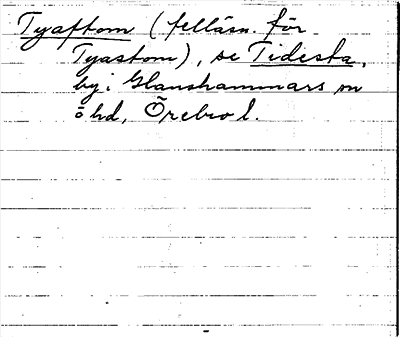 Tyaftom (felläsn. för
Tyastom), se Tidesta,
by i Glanshammars sn
o hd, Örebro l.